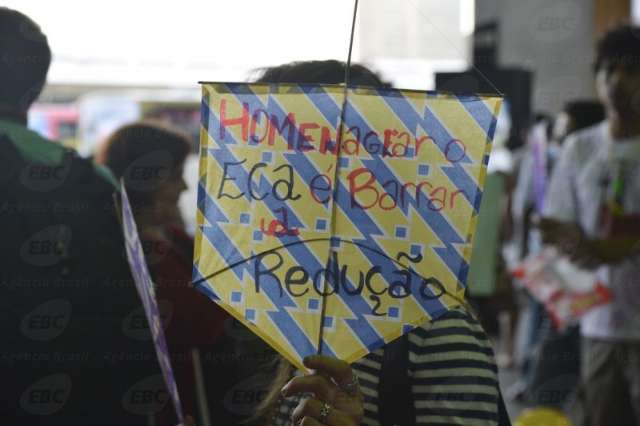 HOMENAGEAR o
ECA é Barrar
a
Redução
EBC
Agência Brasil